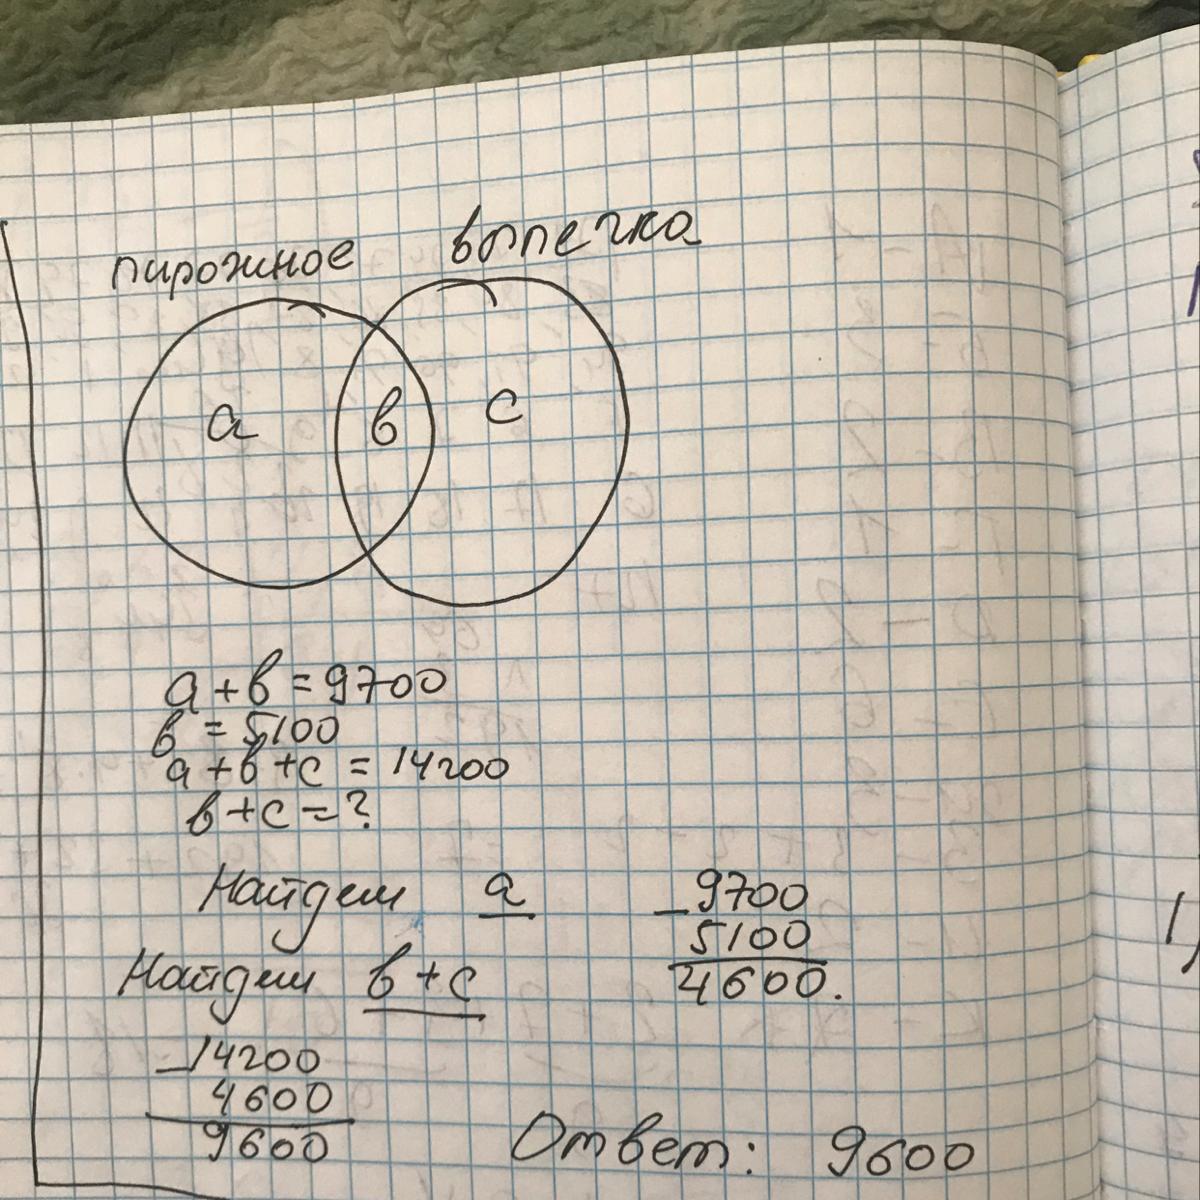 пирожное выпечка
а в с
а + в = 9700
в = 5100
а + в + с = 14200
в + с = ?
Найдем а
_ 9700
5100
4600.
Найдем в + с
_ 14200
4600
9600
Ответ: 9600